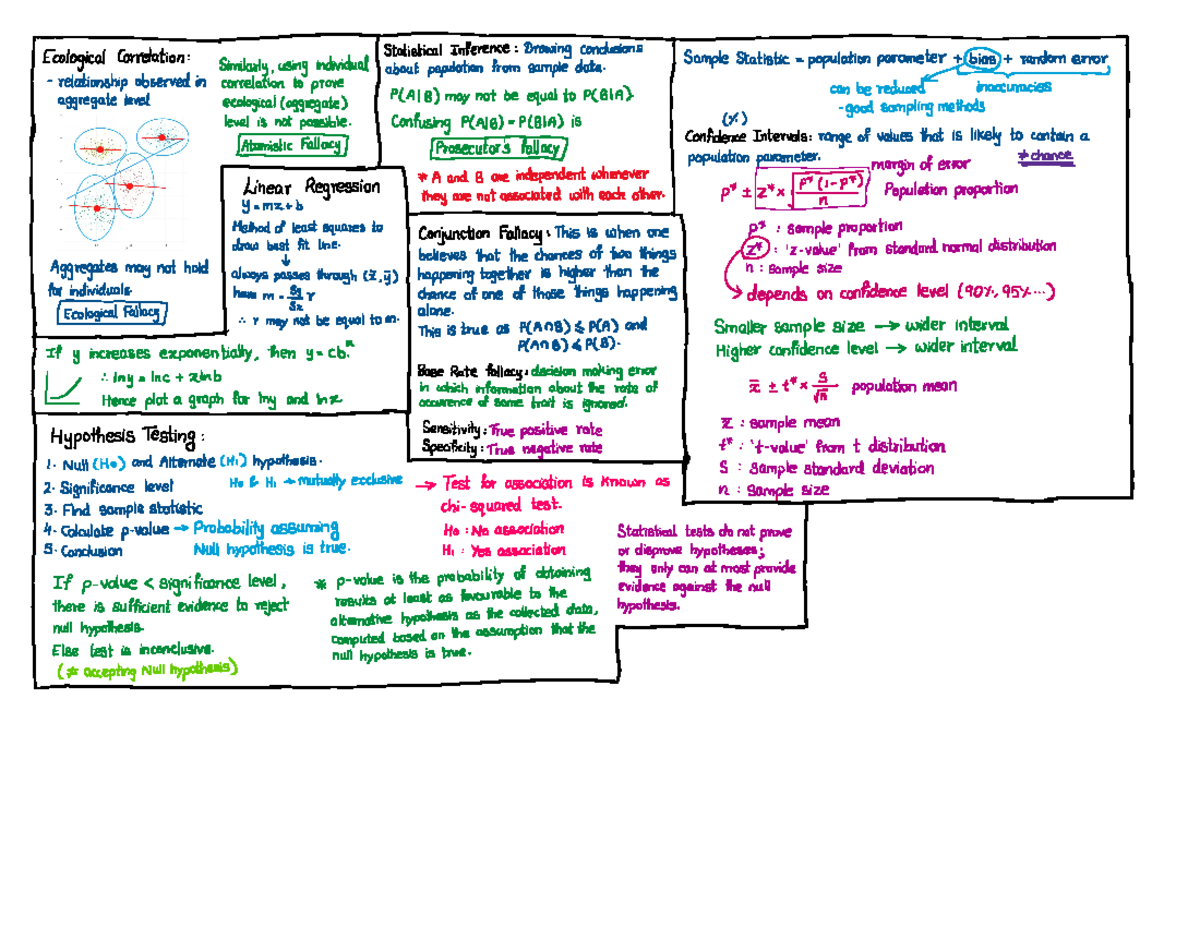 Ecological Correlation:
- relationship observed in
aggregate level
Similarly, using individual
correlation to prove
ecological (aggregate)
level is not possible.
Atomistic Fallacy
Aggregates may not hold
for individuals.
Ecological Fallacy
Linear Regression
y = mx + b
Method of least squares to
draw best fit line.
↓
always passes through (x̄, ȳ)
have m = Sy/Sx r
∴ r may not be equal to m.
If y increases exponentially, then y = cbˣ.
∴ lny = lnc + xlnb
Hence plot a graph for lny and lnx
Statistical Inference: Drawing conclusions
about population from sample data.
P(A|B) may not be equal to P(B|A).
Confusing P(A|B) = P(B|A) is
Prosecutor's Fallacy
* A and B are independent whenever
they are not associated with each other.
Conjunction Fallacy: This is when one
believes that the chances of two things
happening together is higher than the
chance of one of those things happening
alone.
This is true as P(A∩B) ≤ P(A) and
P(A∩B) ≤ P(B).
Base Rate fallacy: decision making error
in which information about the rate of
occurence of some trait is ignored.
Sensitivity: True positive rate
Specificity: True negative rate
Sample Statistic = population parameter + bias + random error
can be reduced
- good sampling methods
inaccuracies
(%)
Confidence Intervals: range of values that is likely to contain a
population parameter.
≠ chance
margin of error
p* ± z* × √(p*(1-p*)/n) Population proportion
p* : sample proportion
z* : 'z-value' from standard normal distribution
n : sample size
depends on confidence level (90%, 95%...)
Smaller sample size → wider interval
Higher confidence level → wider interval
x̄ ± t* × s/√n population mean
x̄ : sample mean
t* : 't-value' from t distribution
S : sample standard deviation
n : sample size
Hypothesis Testing:
1. Null (H₀) and Alternate (H₁) hypothesis.
2. Significance level
H₀ & H₁ → mutually exclusive
3. Find sample statistic
4. Calculate p-value → Probability assuming
Null hypothesis is true.
5. Conclusion
→ Test for association is known as
chi-squared test.
H₀ : No association
H₁ : Yes association
If p-value < significance level,
there is sufficient evidence to reject
null hypothesis.
Else test is inconclusive.
(≠ accepting Null hypothesis)
* p-value is the probability of obtaining
results at least as favourable to the
alternative hypothesis as the collected data,
computed based on the assumption that the
null hypothesis is true.
Statistical tests do not prove
or disprove hypotheses;
they only can at most provide
evidence against the null
hypothesis.